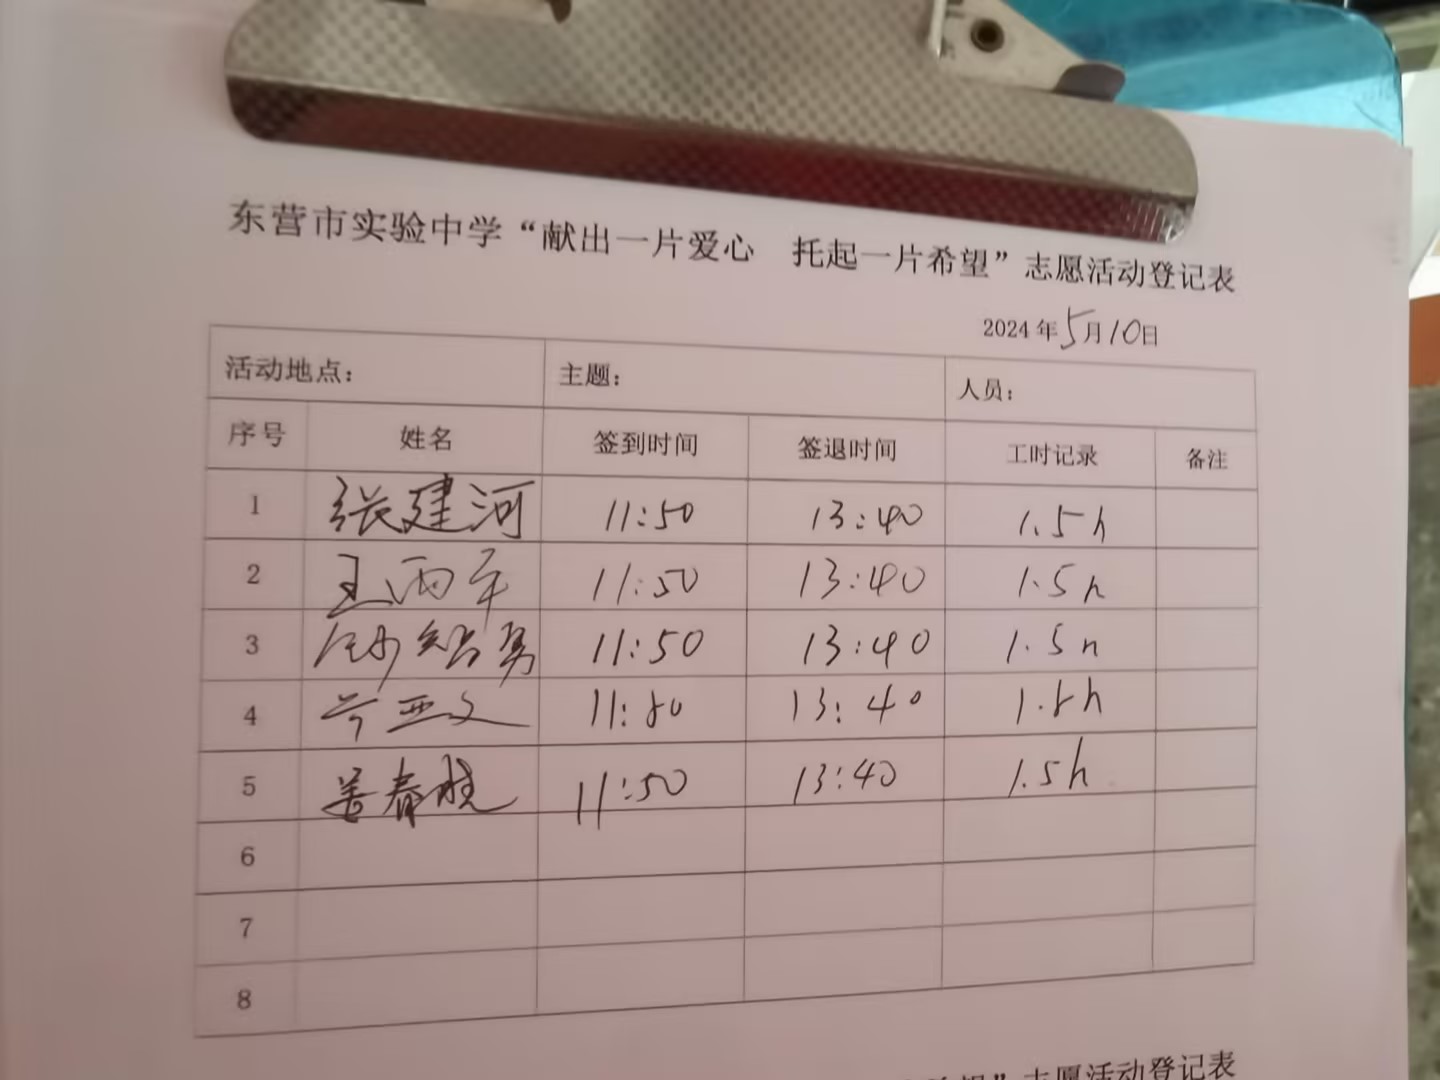 东营市实验中学“献出一片爱心 托起一片希望”志愿活动登记表
2024年5月10日
活动地点： 主题： 人员：
序号 姓名 签到时间 签退时间 工时记录 备注
1 张建河 11:50 13:40 1.5h
2 王丙军 11:50 13:40 1.5h
3 智勇 11:50 13:40 1.5h
4 亚文 11:50 13:40 1.5h
5 姜春晓 11:50 13:40 1.5h
6
7
8
望”志愿活动登记表